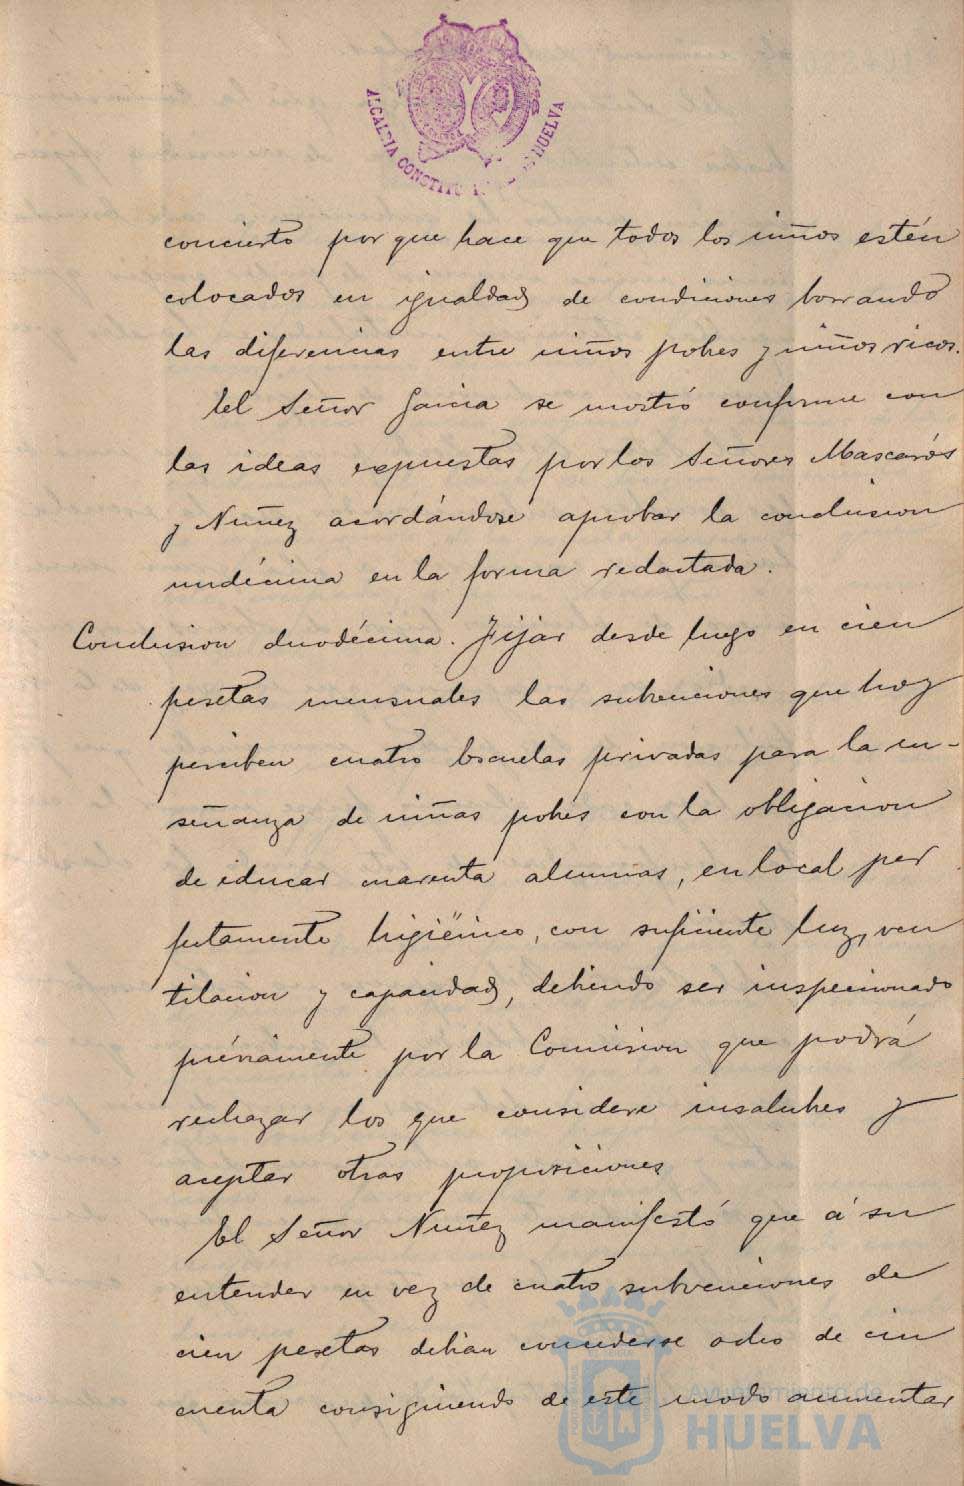 ALCALDIA CONSTITU HUELVA
concierto por que hace que todos los niños estén
colocados en igualdad de condiciones borrando
las diferencias entre niños pobres y niños ricos.
El Señor García se mostró conforme con
las ideas expuestas por los Señores Mascarós
y Nuñez acordándose aprobar la conclusion
undécima en la forma redactada.
Conclusion duodécima. Fijar desde luego en cien
pesetas mensuales las subvenciones que hoy
perciben cuatro Escuelas privadas para la en-
señanza de niñas pobres con la obligacion
de educar cuarenta alumnas, en local per
fectamente higiénico, con suficiente luz, ven
tilacion y capacidad, debiendo ser inspeccionado
préviamente por la Comision que podrá
rechazar los que considere insalubres y
aceptar otras proposiciones
El Señor Nuñez manifestó que á su
entender en vez de cuatro subvenciones de
cien pesetas debian concederse ocho de cin
cuenta consiguiendo de este modo aumentar
Ayuntamiento de
HUELVA